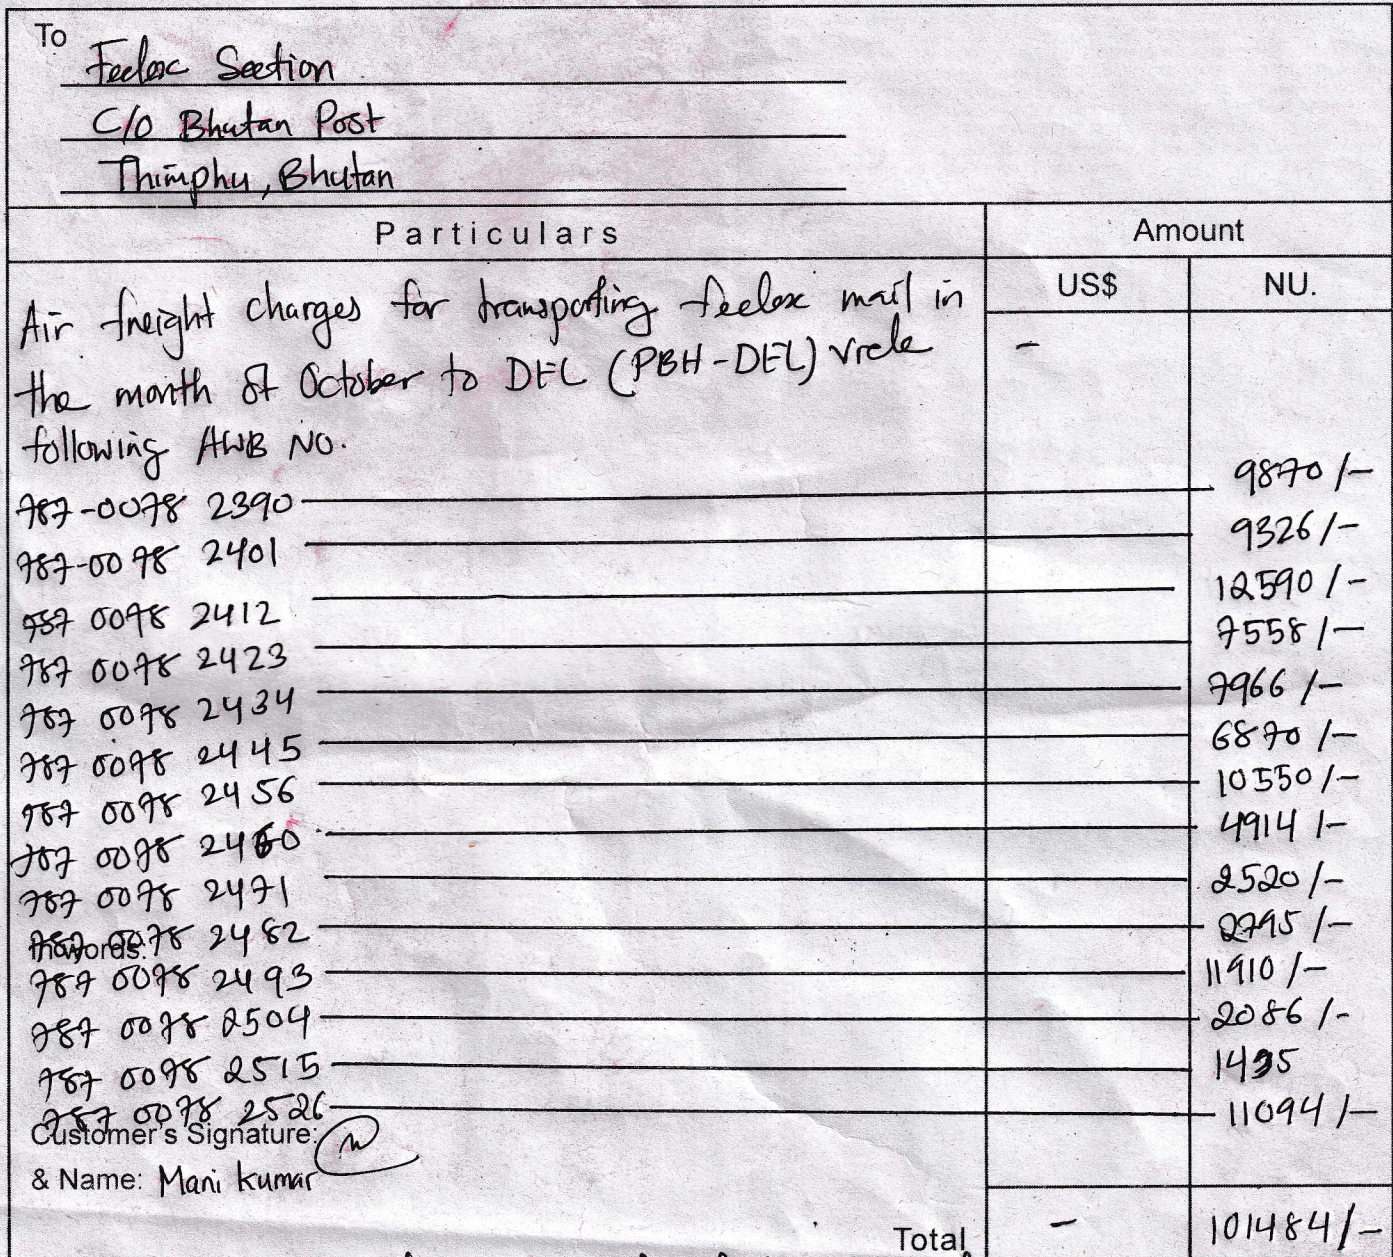 To
Feelex Section
C/O Bhutan Post
Thimphu, Bhutan
Particulars Amount
US$ NU.
Air freight charges for transporting feelex mail in -
the month of October to DEL (PBH-DEL)
following AWB NO.
787-0078 2390 9870/-
787-0078 2401 9326/-
787 0078 2412 12590/-
787 0078 2423 7558/-
787 0078 2434 7966/-
787 0078 2445 6870/-
787 0078 2456 10550/-
787 0078 2460 4914/-
787 0078 2471 2520/-
787 0078 2482 2795/-
Inwords:
787 0078 2493 11910/-
787 0078 2504 2086/-
787 0078 2515 1435
787 0078 2526 11094/-
Customer's Signature:
& Name: Mani kumar
Total - 101484/-